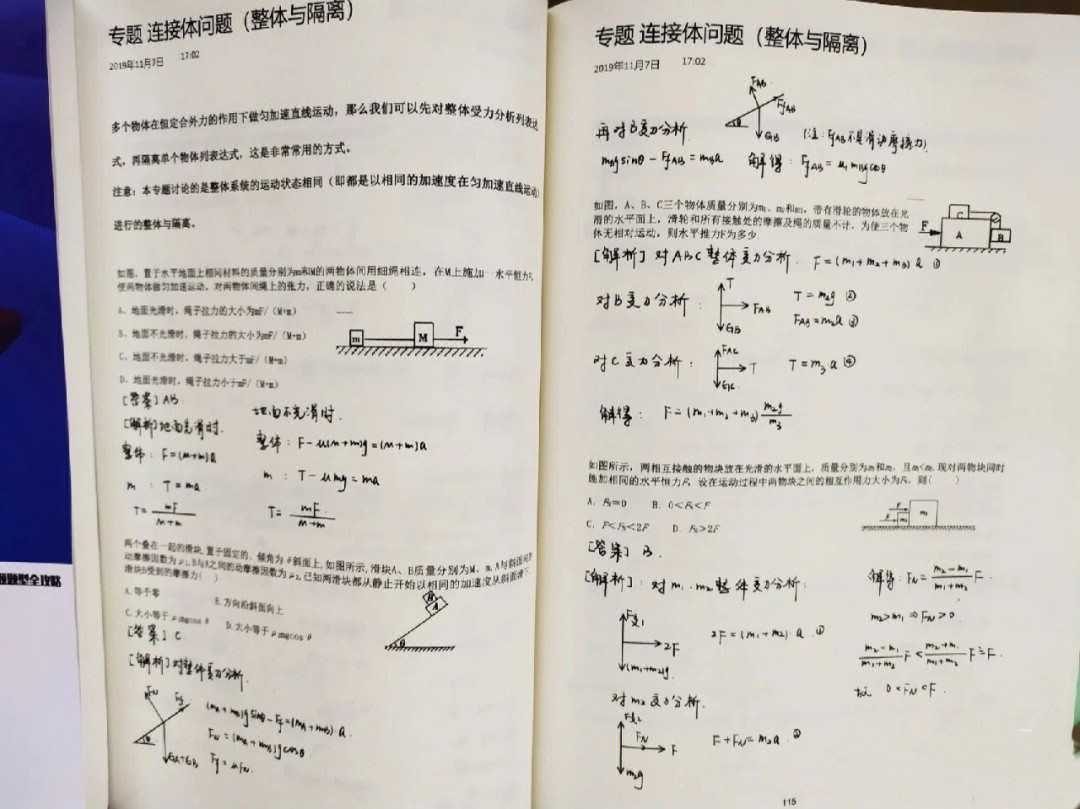 专题 连接体问题（整体与隔离）
2019年11月7日 17:02
多个物体在恒定合外力的作用下做匀加速直线运动，那么我们可以先对整体受力分析列表达
式，再隔离单个物体列表达式，这是非常常用的方式。
注意：本专题讨论的是整体系统的运动状态相同（即都是以相同的加速度在匀加速直线运动）
进行的整体与隔离。
如图，置于水平地面上相同材料的质量分别为m和M的两物体间用细绳相连，在M上施加一水平恒力F，
使两物体做匀加速运动，对两物体间绳上的张力，正确的说法是（ ）
A、地面光滑时，绳子拉力的大小为mF/（M+m）
B、地面不光滑时，绳子拉力的大小为mF/（M+m）
C、地面不光滑时，绳子拉力大于mF/（M+m）
D、地面光滑时，绳子拉力小于mF/（M+m）
m M F
[答案] AB
[解析]地面光滑时. 地面不光滑时.
整体：F=(M+m)a 整体：F-μ(M+m)g=(M+m)a
m：T=ma m：T-μmg=ma
T=mF/(M+m) T=mF/(M+m)
两个叠在一起的滑块，置于固定的、倾角为θ斜面上，如图所示，滑块A、B质量分别为M、m，A与斜面间的
动摩擦因数为μ₁，B与A之间的动摩擦因数为μ₂，已知两滑块都从静止开始以相同的加速度从斜面滑下，
滑块B受到的摩擦力（ ）
A. 等于零 B. 方向沿斜面向上
C. 大小等于μ₁mgcosθ D. 大小等于μ₂mgcosθ
B A θ
[答案] C
[解析]对整体受力分析.
FN Ff
θ GA+GB
(mA+mB)gsinθ-Ff=(mA+mB)·a
FN=(mA+mB)gcosθ
Ff=μFN.
题型全攻略
专题 连接体问题（整体与隔离）
2019年11月7日 17:02
FAB FfAB
θ GB
再对B受力分析 (注：FfAB不是滑动摩擦力)
mBgsinθ-FfAB=mBa 解得：FfAB=μ₁mBgcosθ
如图，A、B、C三个物体质量分别为m₁、m₂和m₃，带有滑轮的物体放在光
滑的水平面上，滑轮和所有接触处的摩擦及绳的质量不计，为使三个物
体无相对运动，则水平推力F为多少。
F C A B
[解析] 对ABC整体受力分析. F=(m₁+m₂+m₃)a ①
对B受力分析： T FAB GB T=m₂g ②
FAB=m₂a ③
对C受力分析： FAC T GC T=m₃a ④
解得： F=(m₁+m₂+m₃)m₂g/m₃
如图所示，两相互接触的物块放在光滑的水平面上，质量分别为m₁和m₂，且m₁<m₂.现对两物块同时
施加相同的水平恒力F，设在运动过程中两物块之间的相互作用力大小为Fₙ，则（ ）
A. Fₙ=0 B. 0<Fₙ<F
C. F<Fₙ<2F D. Fₙ>2F
F F m₁ m₂
[答案] B.
[解析]：对m₁、m₂整体受力分析：
F支1 2F (m₁+m₂)g
2F=(m₁+m₂)·a ①
对m₂受力分析.
F支2 FN F m₂g
F+FN=m₂a ②
解得：FN=(m₂-m₁)/(m₁+m₂) F.
m₂>m₁⇒FN>0
(m₂-m₁)/(m₁+m₂) F<(m₂+m₁)/(m₁+m₂) F=F.
故 0<FN<F.
115